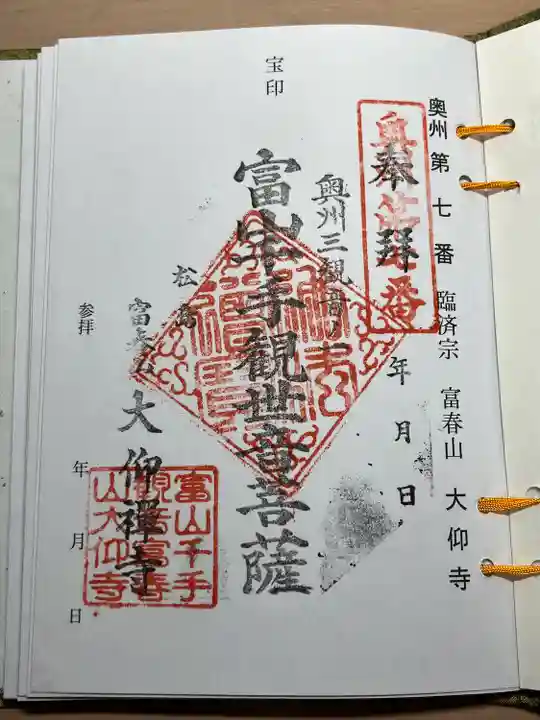 奥州第七番 臨済宗 富春山 大仰寺
奉拝
年月日
奥州三観音ノ一
富山千手観世音菩薩
宝印
松島
富春山
大仰禅寺
富山千手
観音富春
山大仰寺
参拝 年月日